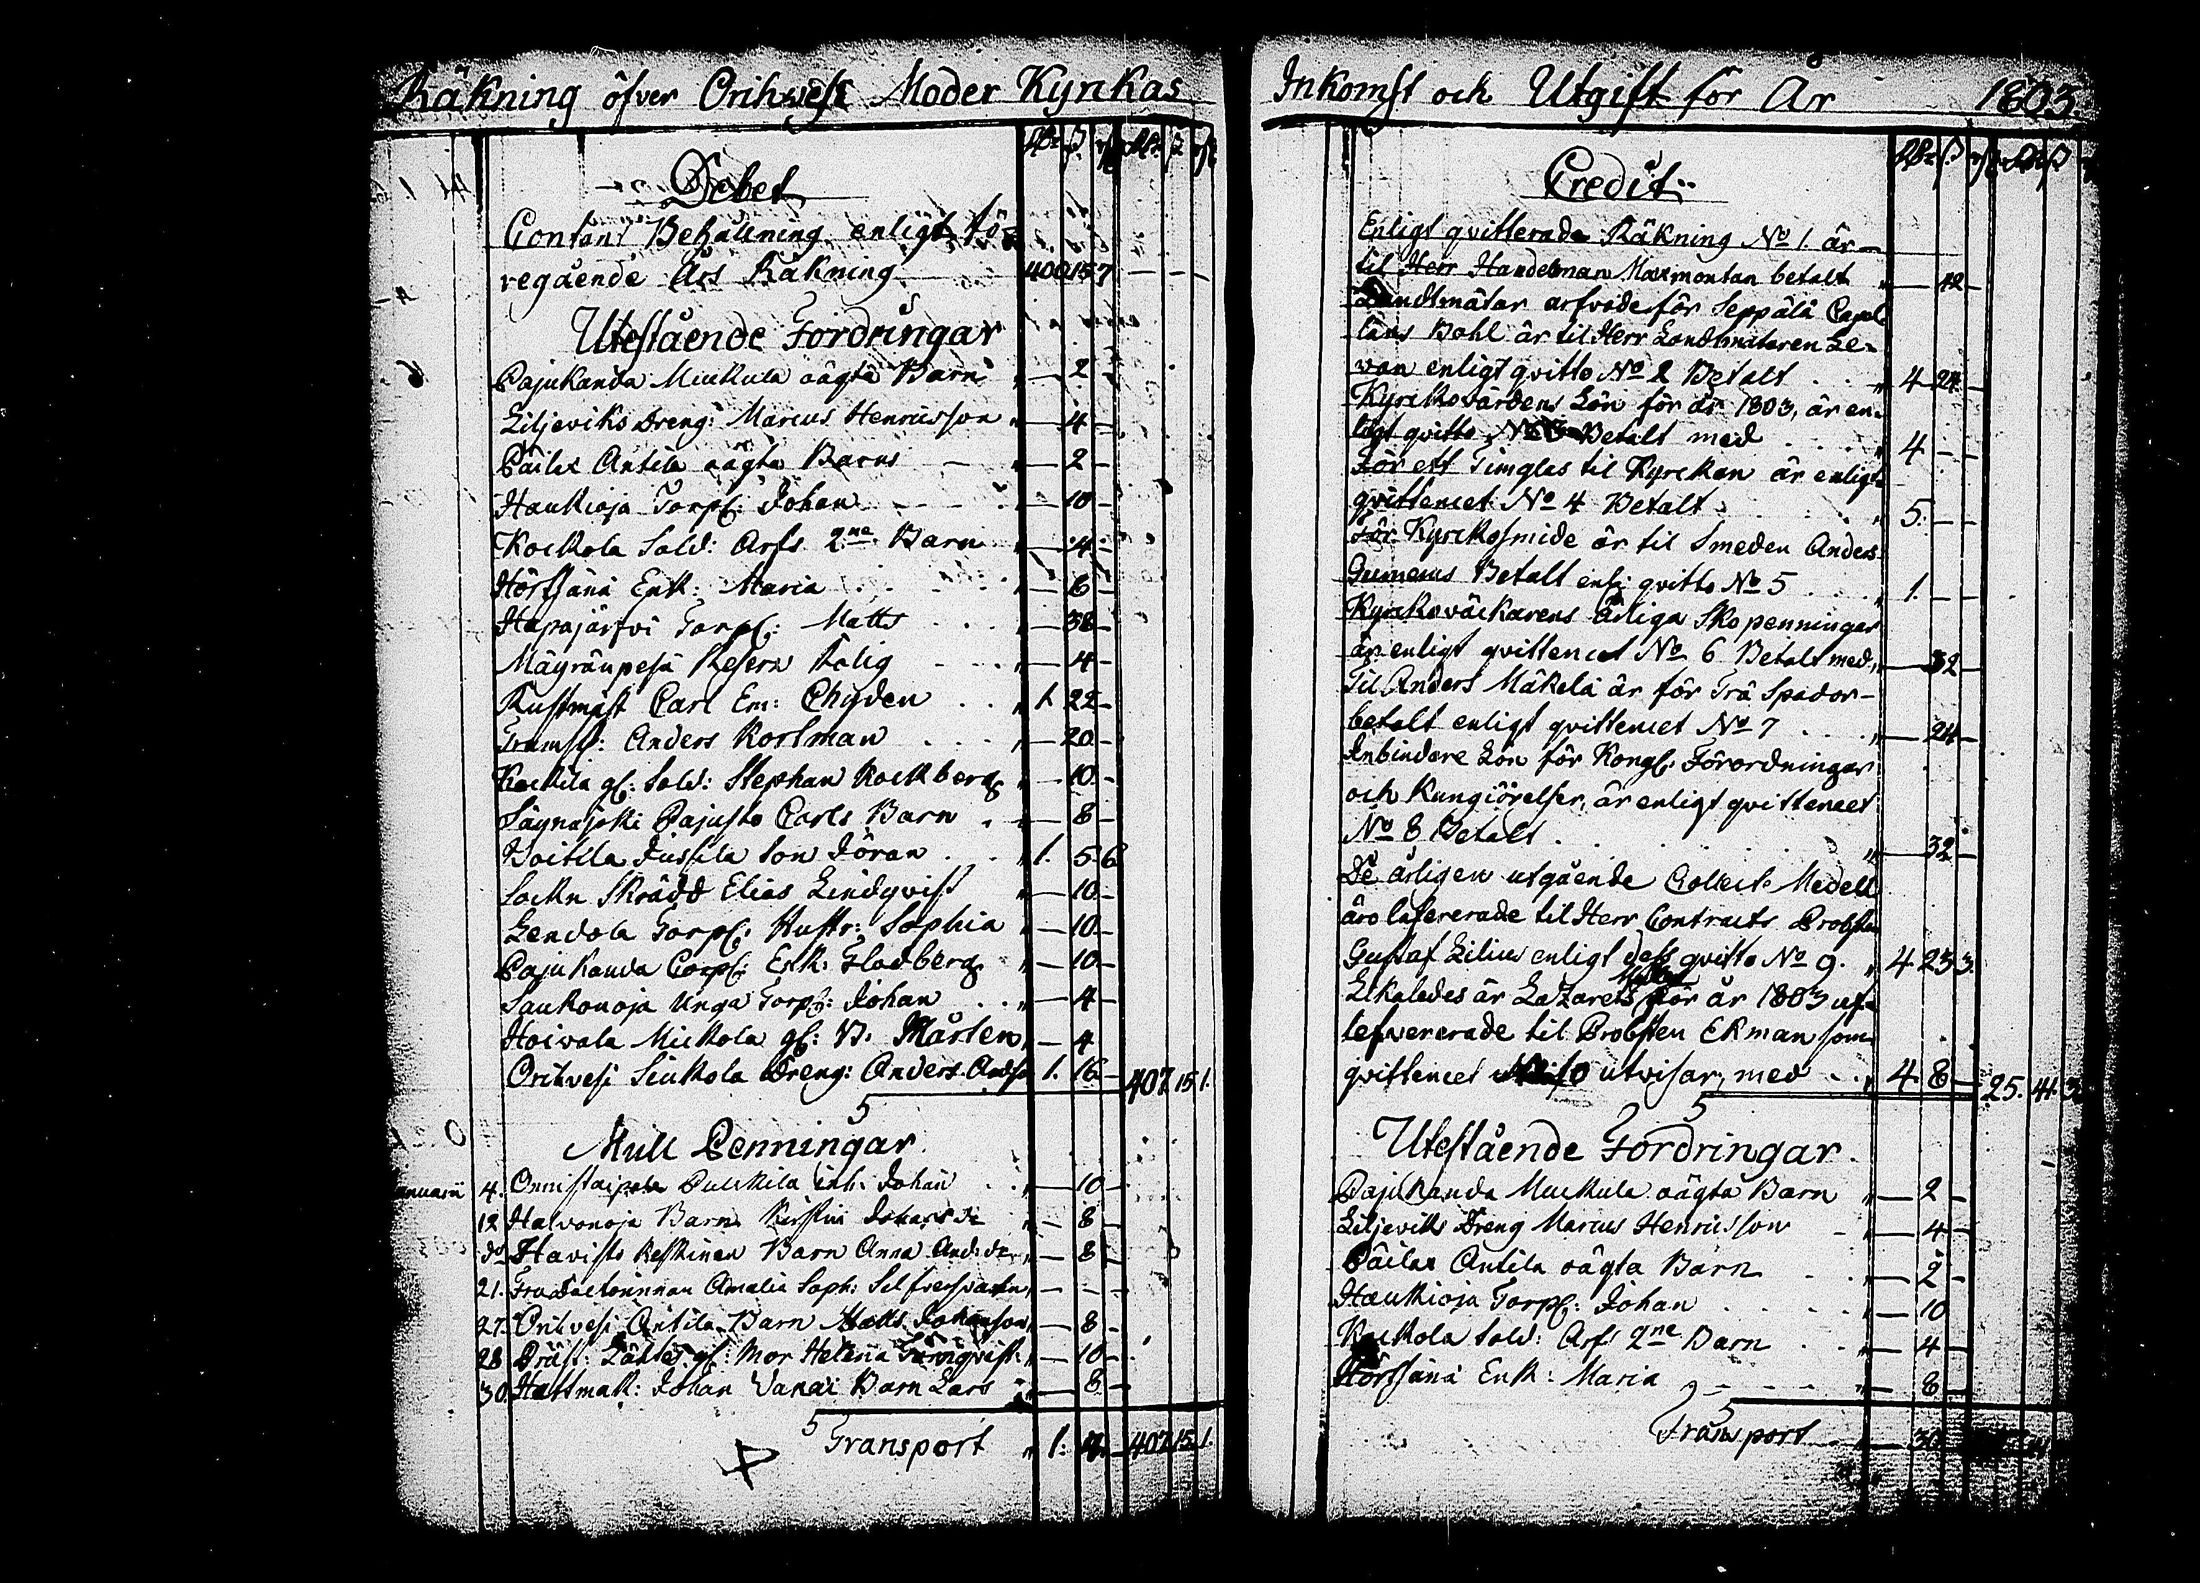 Räkning öfver Orihvesi Moder Kyrkas
Debet
Contant Behållning enligt fö-
regående Års Räkning 400 15 7
Utestående Fordringar
Pajukanda Muckula oägta Barn " — 2 —
Liljeviks Dreng: Marcus Henricsson " — 4 —
Päilax Antila oägta Barns " — 2 —
Haukioja Torp: Johan " — 10 —
Kockola Sold: Arfs 2ne Barn " — 4 —
Hörtsänä Enk: Maria " — 8 —
Hapajärfvi Torp: Matts — 38 —
Mäyränpesä Reserv Rolig " — 4 —
Rustmäst Carl Em: Chyden " 1 22 —
Trumsl: Anders Korsman " — 20 —
Kockila gl: Sold: Stephan Kockberg " — 10 —
Säynäjoki Pajusto Carls Barn — 8 —
Voitila Jussila Son Jöran " 1. 5 6
Sockn Skrädd Elias Lindqvist " — 10 —
Lendola Torp: Hustr: Sophia " — 10 —
Pajukanda Corp: Enk: Gladberg " — 10 —
Saukonoja Unga Torp: Johan " — 4 —
Hoivala Mickola gl: V. Mårten " — 4
Orihvesi Siukola Dreng: Anders Andss 1. 16 — 407 15 1.
Mull Penningar
Januarii 4. Onnistaipale Pulckila inh: Johan " — 10 —
12 Halvonoja Barn Kirstin Johans dr " — 8 —
do Havisto Keskinen Barn Anna And: dr " — 8 —
21. Fru Amalia Soph: — — —
27. Orihvesi Antila Barn Matts Johansson — 8 —
28 Präst: Lähteg gl: Mor Helena Törnqvist — 10 —
30. Hattmak: Johan Barn Lars " — 8 —
Transport " 1: 407 15 1.
Inkomst och Utgift för År 1803.
Credit
Enligt qvitterade Räkning No 1 är
til Herr Handelsman Maxmontan betalt " — 12 —
Landtmätar arfvode för Seppälä Capel-
läns Bohl är til Herr Landtmätaren Le-
van enligt qvitto No 2 Betalt " 4 24 —
Kyrckovärdens Lön för år 1803, är en-
ligt qvitto No 3 Betalt med " 4 — —
För ett Timglas til Kyrckan är enligt
qvittencet No 4 Betalt " 5. — —
För Kyrckosmide är til Smeden Anders
Gumerus Betalt enl: qvitto No 5 " 1. — —
Kyrkoväckarens Årliga Skopenningar
är enligt qvittencet No 6 Betalt med " — 32 —
Til Anders Mäkelä är för Trä Spador
betalt enligt qvittencet No 7 " — 24 —
Inbindare Lön för Kongl: Förordningar
och Kungiörelser, är enligt qvittencet
No 8 Betalt " — 32 —
De årligen utgående Collect Medell
äro lefererade til Herr Contracts Probsten
Gustaf Lilius enligt dess qvitto No 9. " 4 23 3
Likaledes är Lazarets för år 1803 af-
lefvererade til Probsten Ekman som
qvittencet 10 utvisar, med " 4 8 — 25. 41. 3
Utestående Fordringar
Pajukanda Muckula oägta Barn " — 2 —
Liljeviks Dreng Marcus Henricsson — 4 —
Päilax Antila oägta Barn — 2 —
Haukioja Torp: Johan — 10
Kockola Sold: Arfs 2ne Barn — 4 —
Hörtsänä Enk: Maria " — 8 —
Transport " — 30